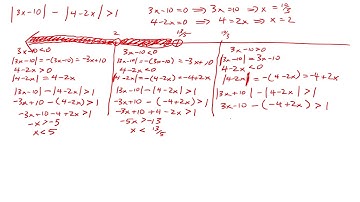 |3x-10| - |4-2x| > 1
3x-10=0 ⇒ 3x=10 ⇒ x = 10/3
4-2x=0 ⇒ 4=2x ⇒ x=2
2 13/5 10/3
3x-10<0
|3x-10| = -(3x-10) = -3x+10
4-2x>0
|4-2x| = 4-2x
|3x-10| - |4-2x| > 1
-3x+10 - (4-2x) > 1
-3x+10-4+2x > 1
-x > -5
x < 5
3x-10<0
|3x-10| = -(3x-10) = -3x+10
4-2x<0
|4-2x| = -(4-2x) = -4+2x
|3x-10| - |4-2x| > 1
-3x+10 - (-4+2x) > 1
-3x+10+4-2x > 1
-5x > -13
x < 13/5
3x-10>0
|3x-10| = 3x-10
4-2x<0
|4-2x| = -(4-2x) = -4+2x
|3x+10| - |4-2x| > 1
3x-10 - (-4+2x) > 1